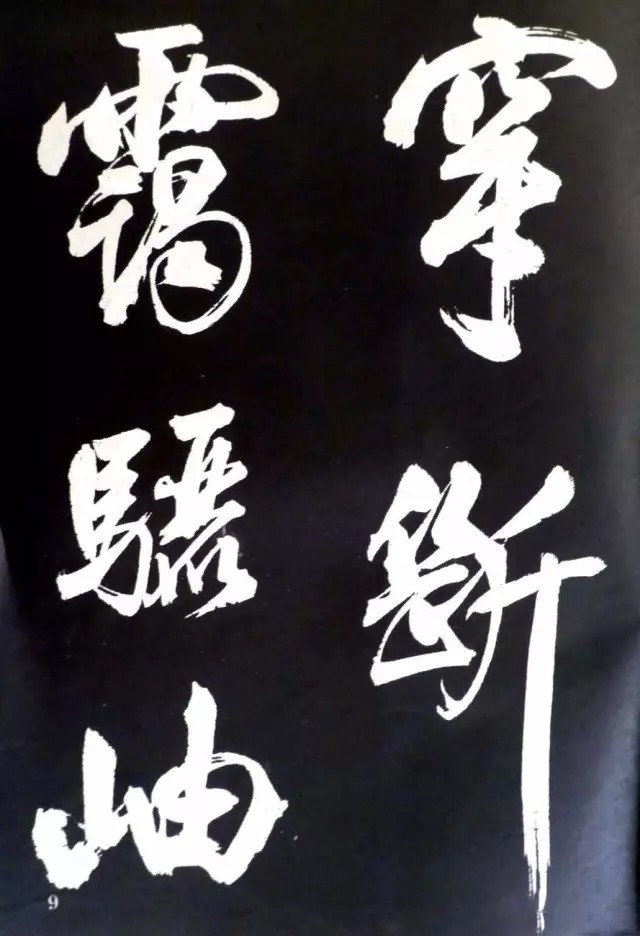 穿斷
靄驪岫
9